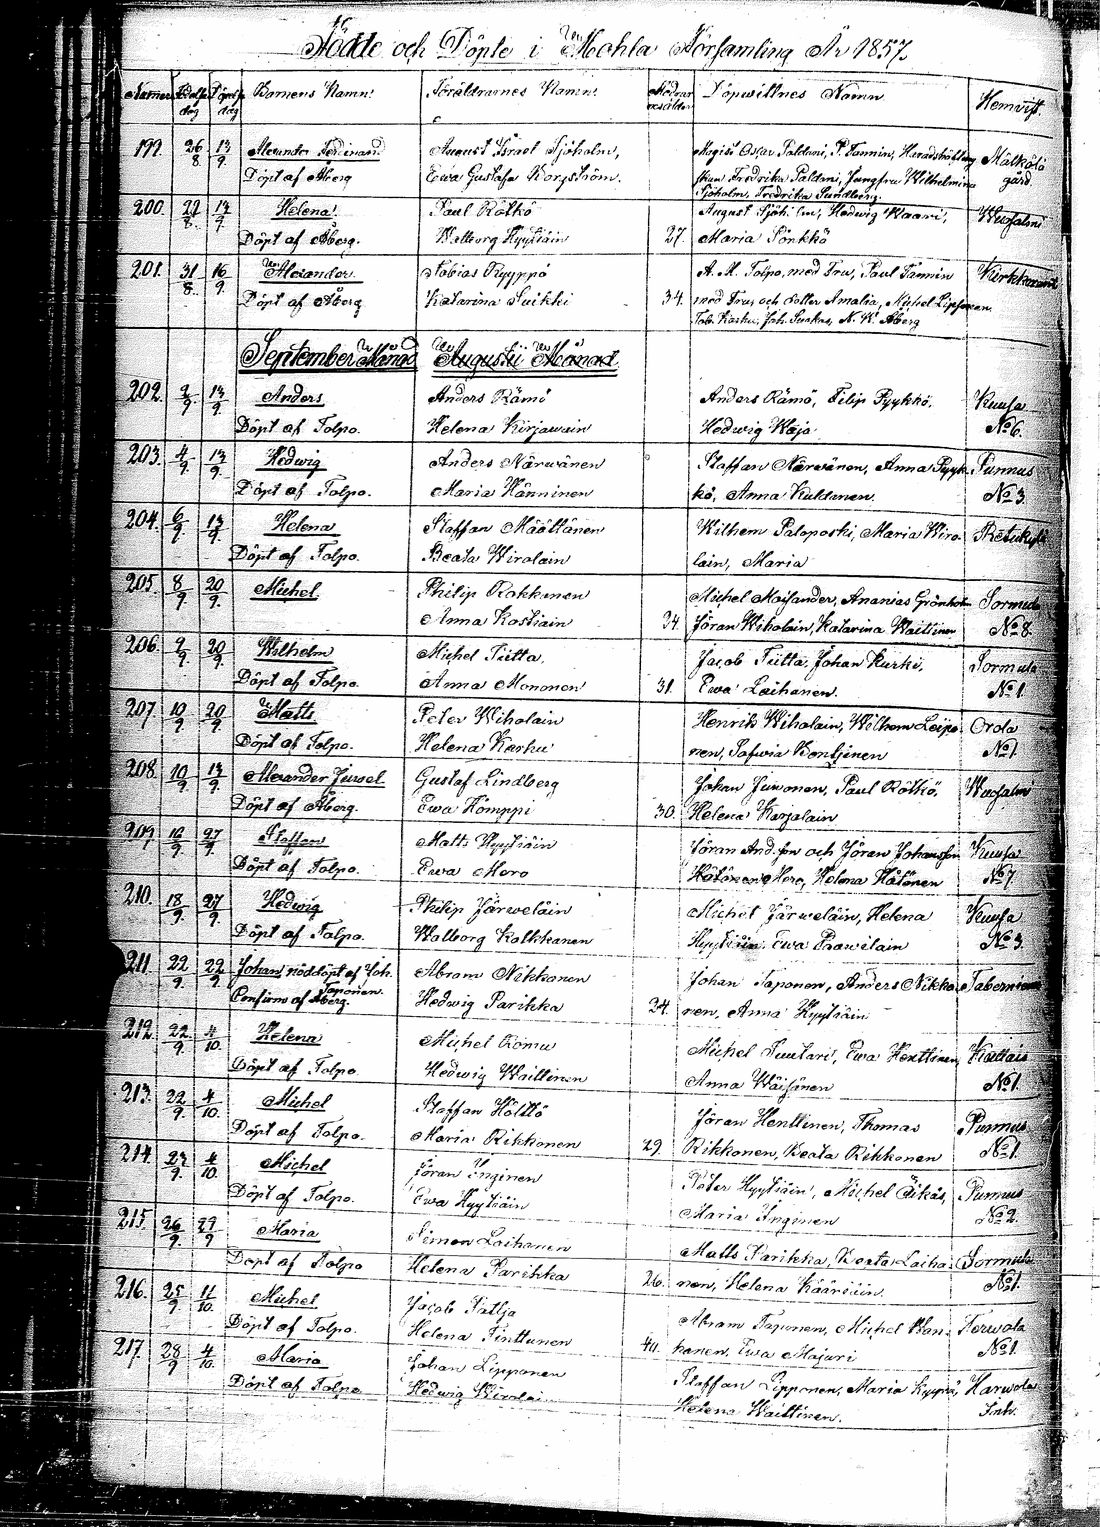 Födde och Döpte i Mohla Församling År 1857.
Barnens Namn. Föräldrarnes Namn. Döpwittnes Namn Hemvist.
199. 26/8 13/9. Alexander Ferdinand August Israel Sjöholm, Oscar Paldani, P. Tannin,
Döpt af Åberg Ewa Gustafa Borgström. Fredrika Paldani, Jungfru Wilhelmina gård.
Sjöholm, Fredrika Sundberg.
200. 27/8. 13/9. Helena. Paul Rötkö August Sjöholm, Hedwig Kaari, Wuosalmi
Döpt af Åberg. Walborg Hyytiäin 27. Maria Sörkkö
201. 31/8. 16/9. Alexander. Tobias Kyyppö A. M. Tolpo, med Fru, Paul Tannin Kirkkorant
Döpt af Åberg Katarina Suikki 34. med Fru, och dotter Amalia, Michel Lipponen.
Åberg
September Månad Augusti Månad.
202. 2/9 13/9. Anders Anders Rämö Anders Rämö, Filip Pyykkö. Kuusa
Döpt af Tolpo. Helena Kirjawain Hedwig Woja No 6.
203. 4/9. 13/9. Hedwig Anders Närwänen Staffan Närwänen, Anna Pyyk- Punnus
Döpt af Tolpo. Maria Hänninen kö, Anna Kukkonen. No 3
204. 6/9. 13/9. Helena Staffan Määttänen Wilhem Paloposki, Maria Wiro-
Döpt af Tolpo. Beata Wirolain lain, Maria
205. 8/9. 20/9. Michel Philip Rokkonen Michel Moisander, Ananias Grönholm Sormula
Anna Kostiain 34. Jöran Wiholain, Katarina Waittinen No 8.
206. 9/9. 20/9. Wilhelm Michel Tiitta, Jacob Tiitta, Johan Kurki, Sormula
Döpt af Tolpo. Anna Mononen 31. Ewa Laihanen. No 1
207. 10/9. 20/9. Matts Peter Wiholain Henrik Wiholain, Wilhem Leipo- Orola
Döpt af Tolpo. Helena Karhu nen, Sofwia Kontjinen No 1
208. 10/9. 13/9. Alexander Juwel Gustaf Lindberg Johan Junonen, Paul Rötkö, Wuosalm
Döpt af Åberg. Ewa Hömppi 30. Helena Karjalain
209. 16/9. 27/9. Staffan Matts Hyytiäin Jöran And.son och Jöran Johansson Kuusa
Döpt af Tolpo. Ewa Moro Hötönen Moro, Helena Hötönen No 7.
210. 18/9. 27/9. Hedwig Philip Järweläin Michel Järweläin, Helena Kuusa
Döpt af Tolpo. Walborg Kolkkanen Hyytiäin Ewa Prawilain No 3.
211. 22/9. 22/9. Johan, nöddöpt af Joh. Abram Nikkanen Johan Taponen, Anders Nikka-
Taponen.
Confirm af Åberg. Hedwig Parikka 34. nen, Anna Hyytiäin
212. 22/9. 4/10. Helena Michel Romu Michel Suutari, Ewa Henttinen,
Döpt af Tolpo Hedwig Waittinen Anna Wäisänen No 1.
213. 22/9. 4/10. Michel Staffan Hölttö Jöran Henttinen, Thomas Punnus
Döpt af Tolpo. Maria Rikkonen 29. Rikkonen, Beata Rikkonen No 1.
214. 23/9. 4/10. Michel Jöran Inginen Peter Hyytiäin, Michel Äikäs, Punnus
Döpt af Tolpo. Ewa Hyytiäin Maria Inginen No 2.
215. 26/9. 27/9 Maria Simon Laihanen Matts Parikka, Beata Laiha- Sormula
Döpt af Tolpo Helena Parikka 26. nen, Helena Kääriäin. No 1.
216. 25/9 11/10. Michel Jacob Tattja Abram Taponen, Michel Wan- Terwola
Döpt af Tolpo. Helena Tinttunen 40. hanen, Ewa Majuri No 1.
217. 28/9 4/10. Maria Johan Lipponen Staffan Lipponen, Maria Kyyrö, Harwola
Döpt af Tolpo Hedwig Wirolain Helena Waittinen. Inh.